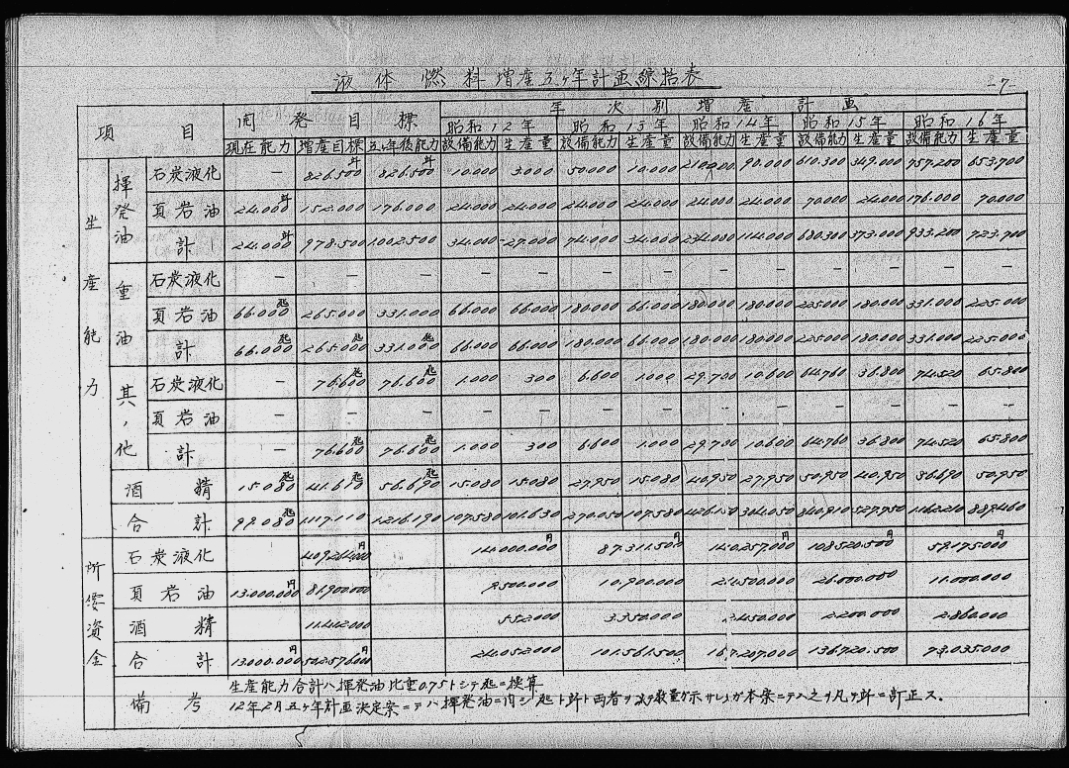 液体燃料増産五ヶ年計画総括表
-7-
項目 開発目標 年次別増産計画
昭和12年 昭和13年 昭和14年 昭和15年 昭和16年
現在能力 増産目標 五ヶ年後能力 設備能力 生産量 設備能力 生産量 設備能力 生産量 設備能力 生産量 設備能力 生産量
生産能力
揮発油
石炭液化 — 826.500 826.500 10.000 3.000 50.000 10.000 210.000 90.000 610.300 349.000 757.200 653.700
頁岩油 24.000 152.000 176.000 24.000 24.000 24.000 24.000 24.000 24.000 70.000 24.000 176.000 70.000
計 24.000 978.500 1.002.500 34.000 27.000 74.000 34.000 234.000 114.000 680.300 373.000 933.200 723.700
重油
石炭液化 — — — — — — — — — — — — —
頁岩油 66.000 265.000 331.000 66.000 66.000 180.000 66.000 180.000 180.000 225.000 180.000 331.000 225.000
計 66.000 265.000 331.000 66.000 66.000 180.000 66.000 180.000 180.000 225.000 180.000 331.000 225.000
其ノ他
石炭液化 — 76.600 76.600 1.000 300 6.600 1.000 29.700 10.600 64.760 36.800 74.520 65.800
頁岩油 — — — — — — — — — — — — —
計 — 76.600 76.600 1.000 300 6.600 1.000 29.700 10.600 64.760 36.800 74.520 65.800
酒精 15.080 41.610 56.690 15.080 15.080 27.950 15.080 40.950 27.950 50.950 40.950 56.690 50.950
合計 99.080 1.117.110 1.216.190 107.580 101.630 270.050 107.580 426.150 304.050 840.910 527.750 889.460
所要資金
石炭液化 409.264.000 14.000.000円 87.311.500円 140.257.000円 108.520.500円 59.175.000円
頁岩油 13.000.000円 81.900.000 9.500.000 10.900.000 24.500.000 26.000.000 11.000.000
酒精 11.412.000 552.000 3.350.000 2.450.000 2.200.000 2.860.000
合計 13.000.000円 502.576.000円 24.052.000 101.561.500 167.207.000 136.720.500 73.035.000
備考
生産能力合計ハ揮発油比重0.75トシテ瓲ニ換算
12年2月五ヶ年計画決定案ニテハ揮発油ニ付シ瓲ト竏ト両者ヲ 数量ガ示サレシガ本案ニテハ之ヲ凡テ竏ニ訂正ス.